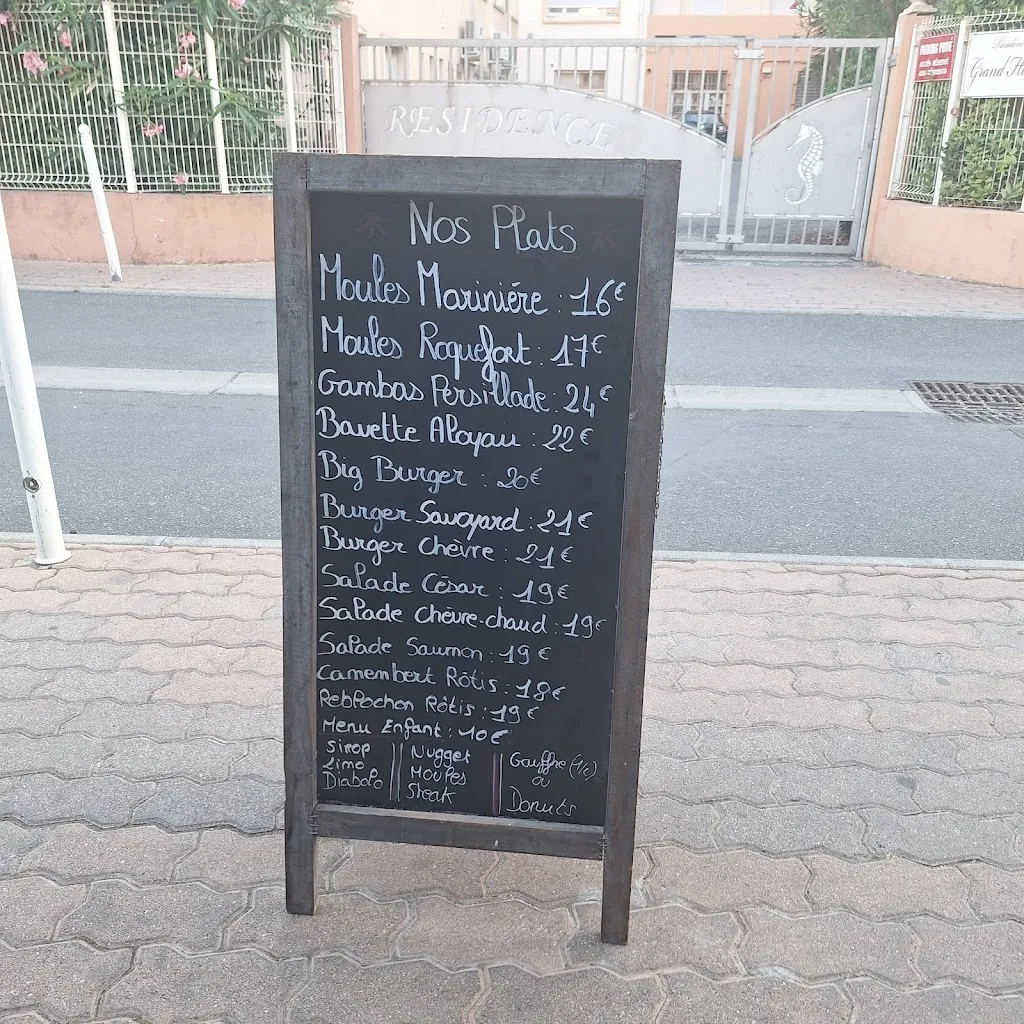 RESIDENCE
PARKING PRIVÉ
Grand
Nos Plats
Moules Mariniére : 16€
Moules Roquefort : 17€
Gambas Persillade : 24€
Bavette Aloyau : 22€
Big Burger : 20€
Burger Savoyard : 21€
Burger Chèvre : 21€
Salade César : 19€
Salade Chèvre-chaud : 19€
Salade Saumon : 19€
Camembert Rôtis : 18€
Reblochon Rôtis : 19€
Menu Enfant : 10€
Sirop
Limo
Diabolo
Nugget
Moules
Steak
Gauffre (1/2)
ou
Donuts